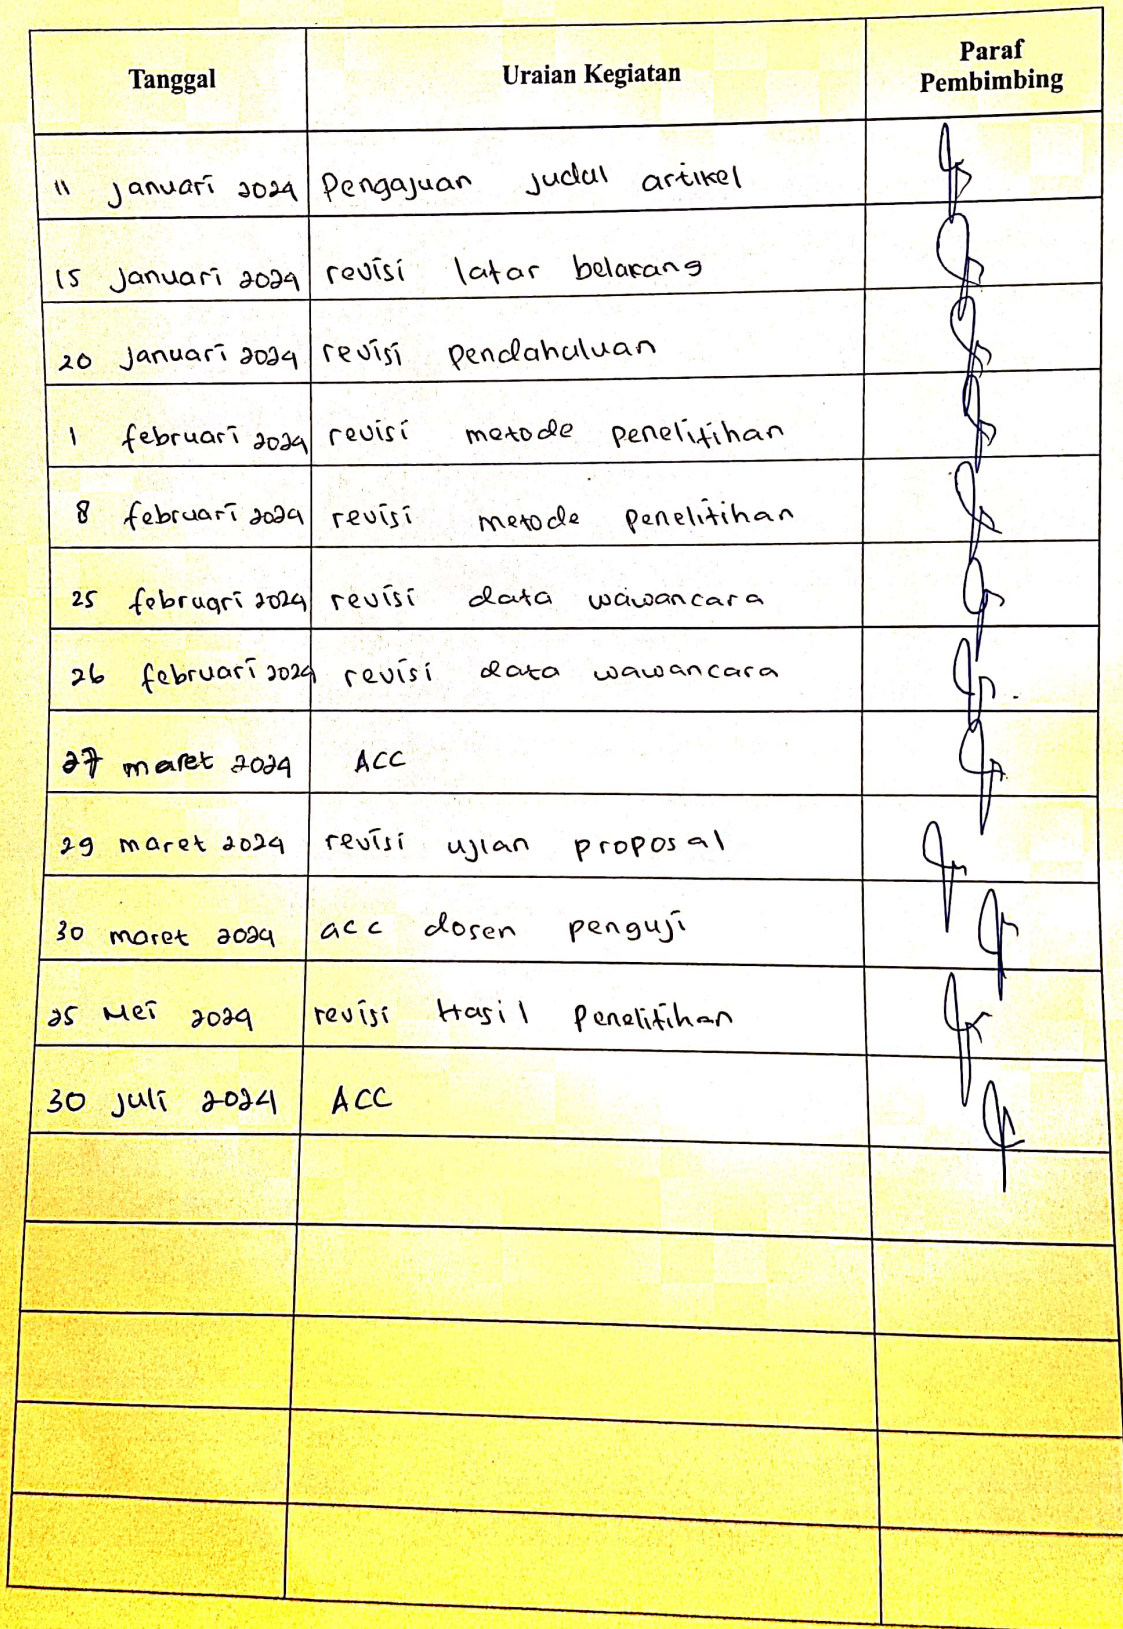 Tanggal Uraian Kegiatan Paraf Pembimbing
11 januari 2024 Pengajuan judul artikel
15 januari 2024 revisi latar belakang
20 januari 2024 revisi pendahuluan
1 februari 2024 revisi metode penelitihan
8 februari 2024 revisi metode penelitihan
25 februari 2024 revisi data wawancara
26 februari 2024 revisi data wawancara
27 maret 2024 ACC
29 maret 2024 revisi ujian proposal
30 maret 2024 acc dosen penguji
25 Mei 2024 revisi Hasil Penelitihan
30 juli 2024 ACC